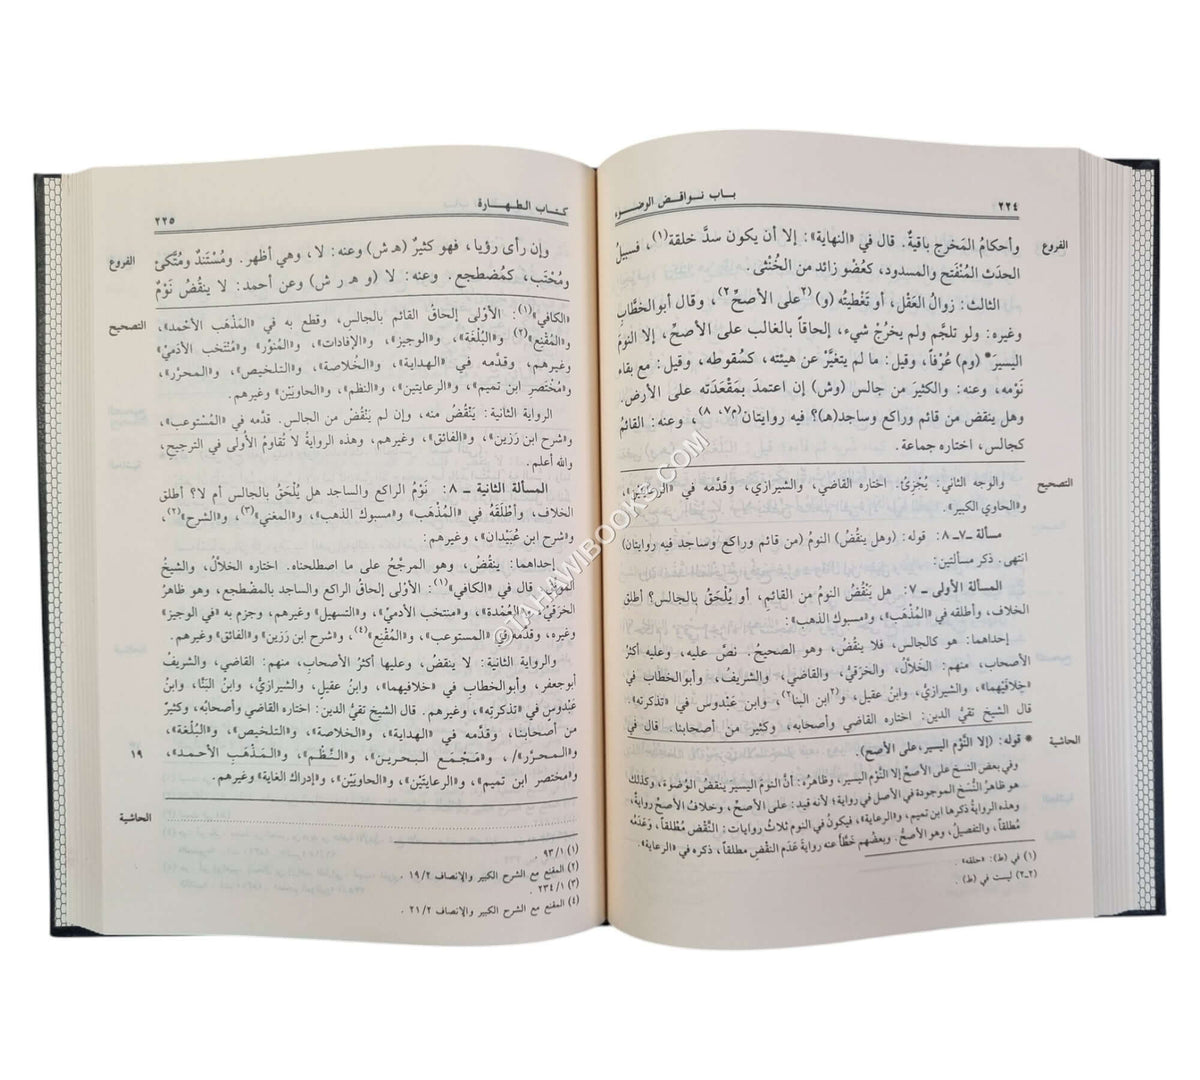 ٢٢٤
باب نواقض الوضوء
الفروع
وأحكامُ المَخرج باقيةٌ. قال في «النهاية»: إلا أن يكون سدَّ خلقة(١)، فسبيلُ
الحدث المُنْفَتح والمسدود، كعُضْو زائد من الخُنْثى.
الثالث: زوالُ العَقْل، أو تَغْطيتُه (و) (٢على الأصحِّ٢)، وقال أبو الخطَّابِ
وغيره: ولو تلجَّم ولم يخرُجْ شيء، إلحاقاً بالغالب على الأصحِّ، إلا النومَ
اليسير* (وم) عُرْفاً، وقيل: ما لم يتغيَّر عن هيئته، كسُقوطه، وقيل: مع بقاء
نَوْمه، وعنه: والكثيرَ من جالس (وش) إن اعتمدَ بمَقْعَدَته على الأرض.
وهل ينقض من قائم وراكع وساجد(هـ)؟ فيه روايتان(م٧، ٨)، وعنه: القائمُ
كجالس، اختاره جماعة.
التصحيح
والوجه الثاني: يُجْزئ. اختاره القاضي، والشيرازي، وقدَّمه في «الرعايتين»،
و«الحاوي الكبير».
مسألة ـ٧ـ ٨: قوله: (وهل ينقُضُ) النومُ (من قائم وراكع وساجد فيه روايتان)
انتهى. ذكر مسألتين:
المسألة الأولى ـ ٧: هل يَنْقُضُ النومُ من القائم، أو يُلْحَقُ بالجالس؟ أطلق
الخلاف، وأطلقه في «المُذْهَب»، و«مسبوك الذهب»:
إحداهما: هو كالجالس، فلا ينقُضُ، وهو الصحيحُ. نصَّ عليه، وعليه أكثرُ
الأصحاب، منهم: الخلَّالُ، والخرَقيُّ، والقاضي، والشريفُ، وأبو الخطاب في
«خِلافَيْهما»، والشيرازي، وابنُ عقيل، و(٢ابن البنا٢)، وابن عَبْدوس في «تذكرته».
قال الشيخ تقي الدين: اختاره القاضي وأصحابه، وكثير من أصحابنا. قال في
الحاشية
* قوله: (إلا النَّوْم اليسير، على الأصح).
وفي بعض النسخ على الأصحِّ إلا النَّوْم اليسير، وظاهرُه: أنَّ النومَ اليسيرَ ينقضُ الوُضوء، وكذلك
هو ظاهرُ النُّسَخ الموجودة في الأصل في رواية؛ لأنه قيد: على الأصحِّ، وخلافُ الأصحِّ روايةٌ،
وهذه الروايةُ ذكرها ابن تميم، و«الرعاية»، فيكونُ في النوم ثلاثُ روايات: النَّقْضُ مُطلقاً، وعَدَمُه
مُطلقاً، والتفصيلُ، وهو الأصحُّ. وبعضُهم خَطَّأ عنه روايةَ عَدَم النَّقْضِ مطلقاً، ذكره في «الرعاية».
(١) في (ط): «حلقه».
(٢-٢) ليست في (ط).
كتاب الطهارة
٢٢٥
الفروع
وإن رأى رؤيا، فهو كثيرٌ (هـ ش) وعنه: لا، وهي أظهر. ومُسْتَنِدٌ ومُتَّكئ
ومُحْتَبٍ، كمُضطجع. وعنه: لا (و هـ ر ش) وعن أحمد: لا ينقُضُ نَوْمٌ
التصحيح
«الكافي»(١): الأوْلى إلحاقُ القائم بالجالس، وقطع به في «المَذْهَب الأحْمد»،
و«المُقْنِع»(٢) و«البُلْغَة»، و«الوجيز»، و«الإفادات»، و«المُنوِّر» و«مُنْتَخب الأدَميِّ»
وغيرهم، وقدَّمه في «الهداية»، و«الخُلاصة»، و«التلخيص»، و«المحرَّر»،
و«مُخْتَصرِ ابن تميم»، و«الرعايتين»، و«النظم»، و«الحاويَيْن» وغيرهم.
الرواية الثانية: يَنْقُضُ منه، وإن لم يَنْقُضْ من الجالس. قدَّمه في «المُسْتوعب»،
و«شرح ابن رَزِين»، و«الفائق»، وغيرهم، وهذه الروايةُ لا تُقاومُ الأولى في الترجيح،
والله أعلم.
المسألة الثانية ـ ٨: نَوْمُ الراكع والساجد هل يُلْحَقُ بالجالس أم لا؟ أطلق
الخلاف، وأطلَقَهُ في «المُذْهَب» و«مسبوك الذهب»، و«المغني»(٣)، و«الشرح»(٢)،
و«شرح ابن عُبَيْدان»، وغيرهم:
إحداهما: يَنْقُضُ، وهو المرجَّحُ على ما اصطلحناه. اختاره الخلَّالُ، والشيخُ
الموفَّق. قال في «الكافي»(١): الأوْلى إلحاقُ الراكع والساجد بالمضطجع، وهو ظاهرُ
الخرَقيِّ، و«العُمْدة»، و«منتخب الأدَميِّ»، و«التسهيل» وغيرهم، وجزم به «في الوجيز»
وغيره، وقدَّمه في «المستوعب»، و«المُقْنِع»(٤)، و«شرح ابن رزين» و«الفائق» وغيرهم.
والرواية الثانية: لا ينقضُ، وعليها أكثرُ الأصحابِ، منهم: القاضي، والشريفُ
أبو جعفر، وأبو الخطاب في «خلافيهما»، وابنُ عقيل، والشيرازيُّ، وابنُ البَنَّا، وابنُ
عَبْدوسٍ في «تذكرتِه»، وغيرهم. قال الشيخ تقيُّ الدين: اختاره القاضي وأصحابُه، وكثيرٌ
من أصحابنا، وقدَّمه في «الهداية»، و«الخلاصة»، و«التلخيص»، و«البُلْغَة»،
١٩
و«المحرَّر»/، و«مَجْمَع البحرين»، و«النَّظْم»، و«المَذْهَبِ الأحمد»،
و«مختصر ابن تميم»، و«الرعايتَيْن»، و«الحاويَيْن»، و«إدراك الغاية» وغيرهم.
الحاشية
(١) ١/ ٩٣ .
(٢) المقنع مع الشرح الكبير والإنصاف ٢/ ١٩ .
(٣) ١/ ٢٣٤ .
(٤) المقنع مع الشرح الكبير والإنصاف ٢/ ٢١ .
©TAHAWIBOOKS.COM